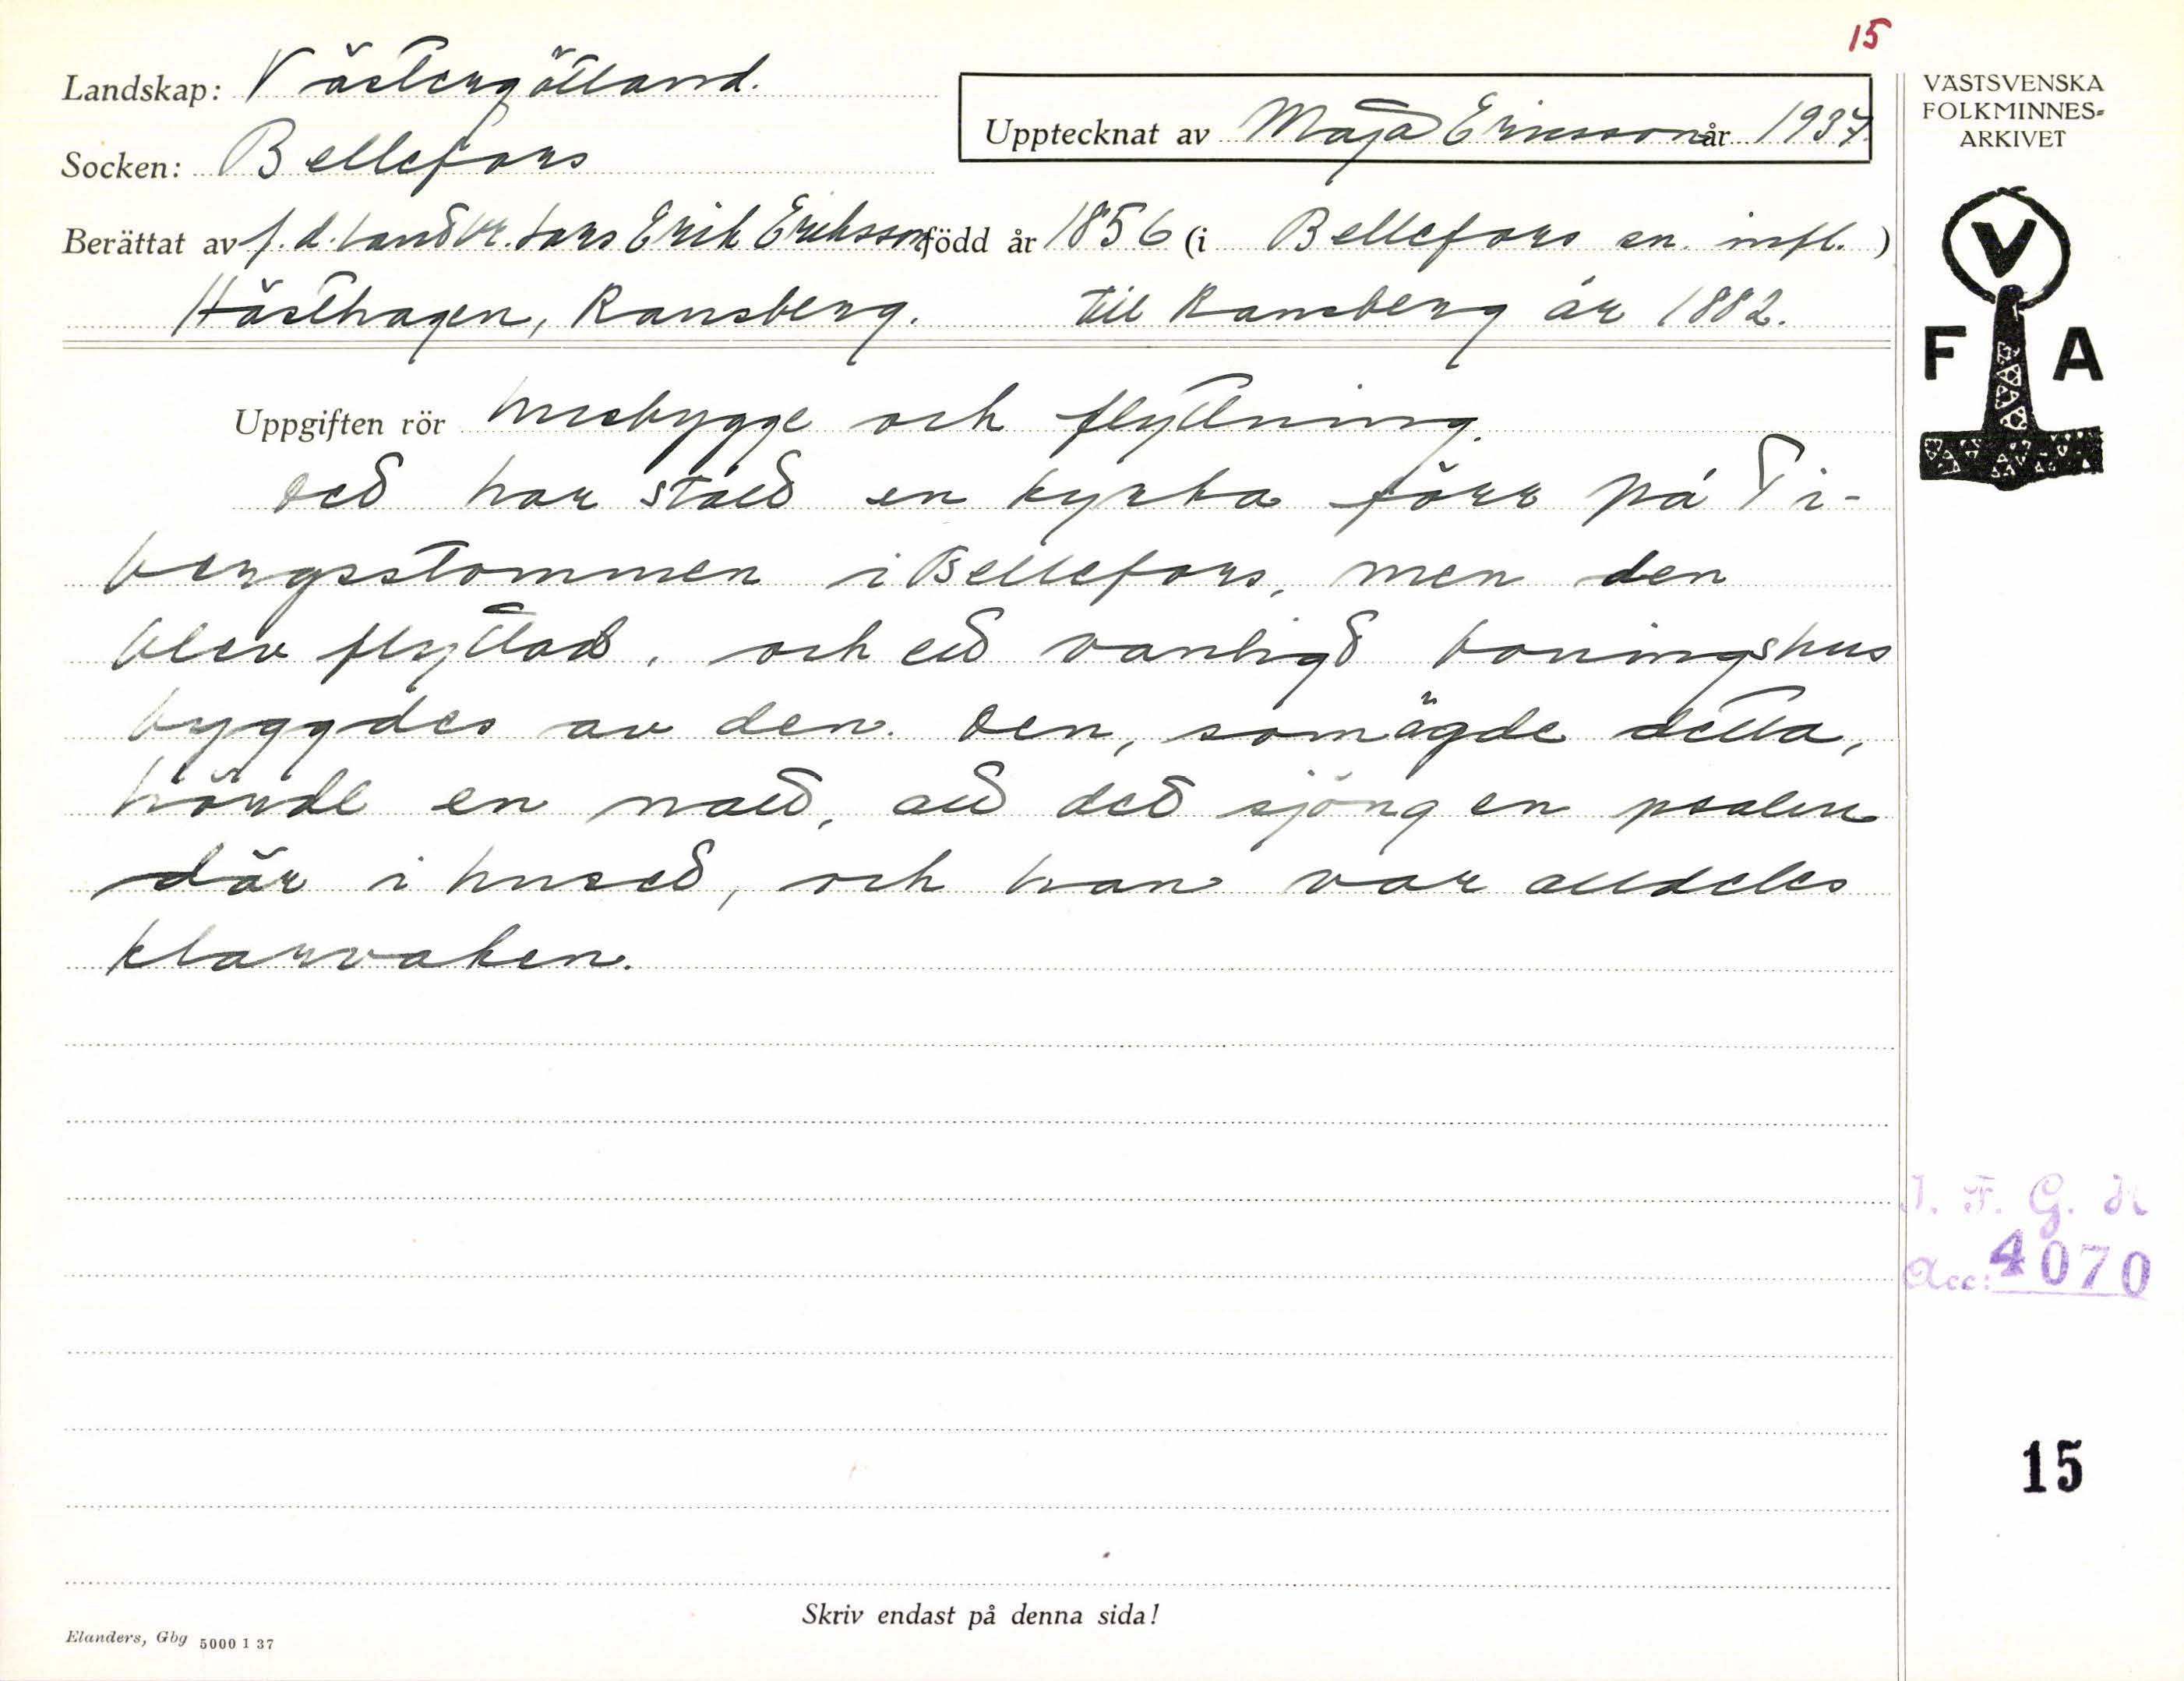 15
Landskap: Västergötland.
Socken: Bellefors
Upptecknat av Maja Ericsson år 1937.
VÄSTSVENSKA
FOLKMINNES-
ARKIVET
Berättat av f.d. lantbr. Lars Erik Eriksson född år 1856 (i Bellefors sn. infl.)
Hästhagen, Ransberg. till Ransberg år 1882.
V
F A
Uppgiften rör husbygge och flyttning.
Det har stått en kyrka förr på Ti-
bergsstommen i Bellefors, men den
blev flyttad, och ett vanligt boningshus
byggdes av den. Den, som ägde detta,
hörde en natt, att det sjöng en psalm
där i huset, och han var alldeles
klarvaken.
I. F. G. H
Acc: 4070
15
Skriv endast på denna sida!
Elanders, Gbg 5000 1 37